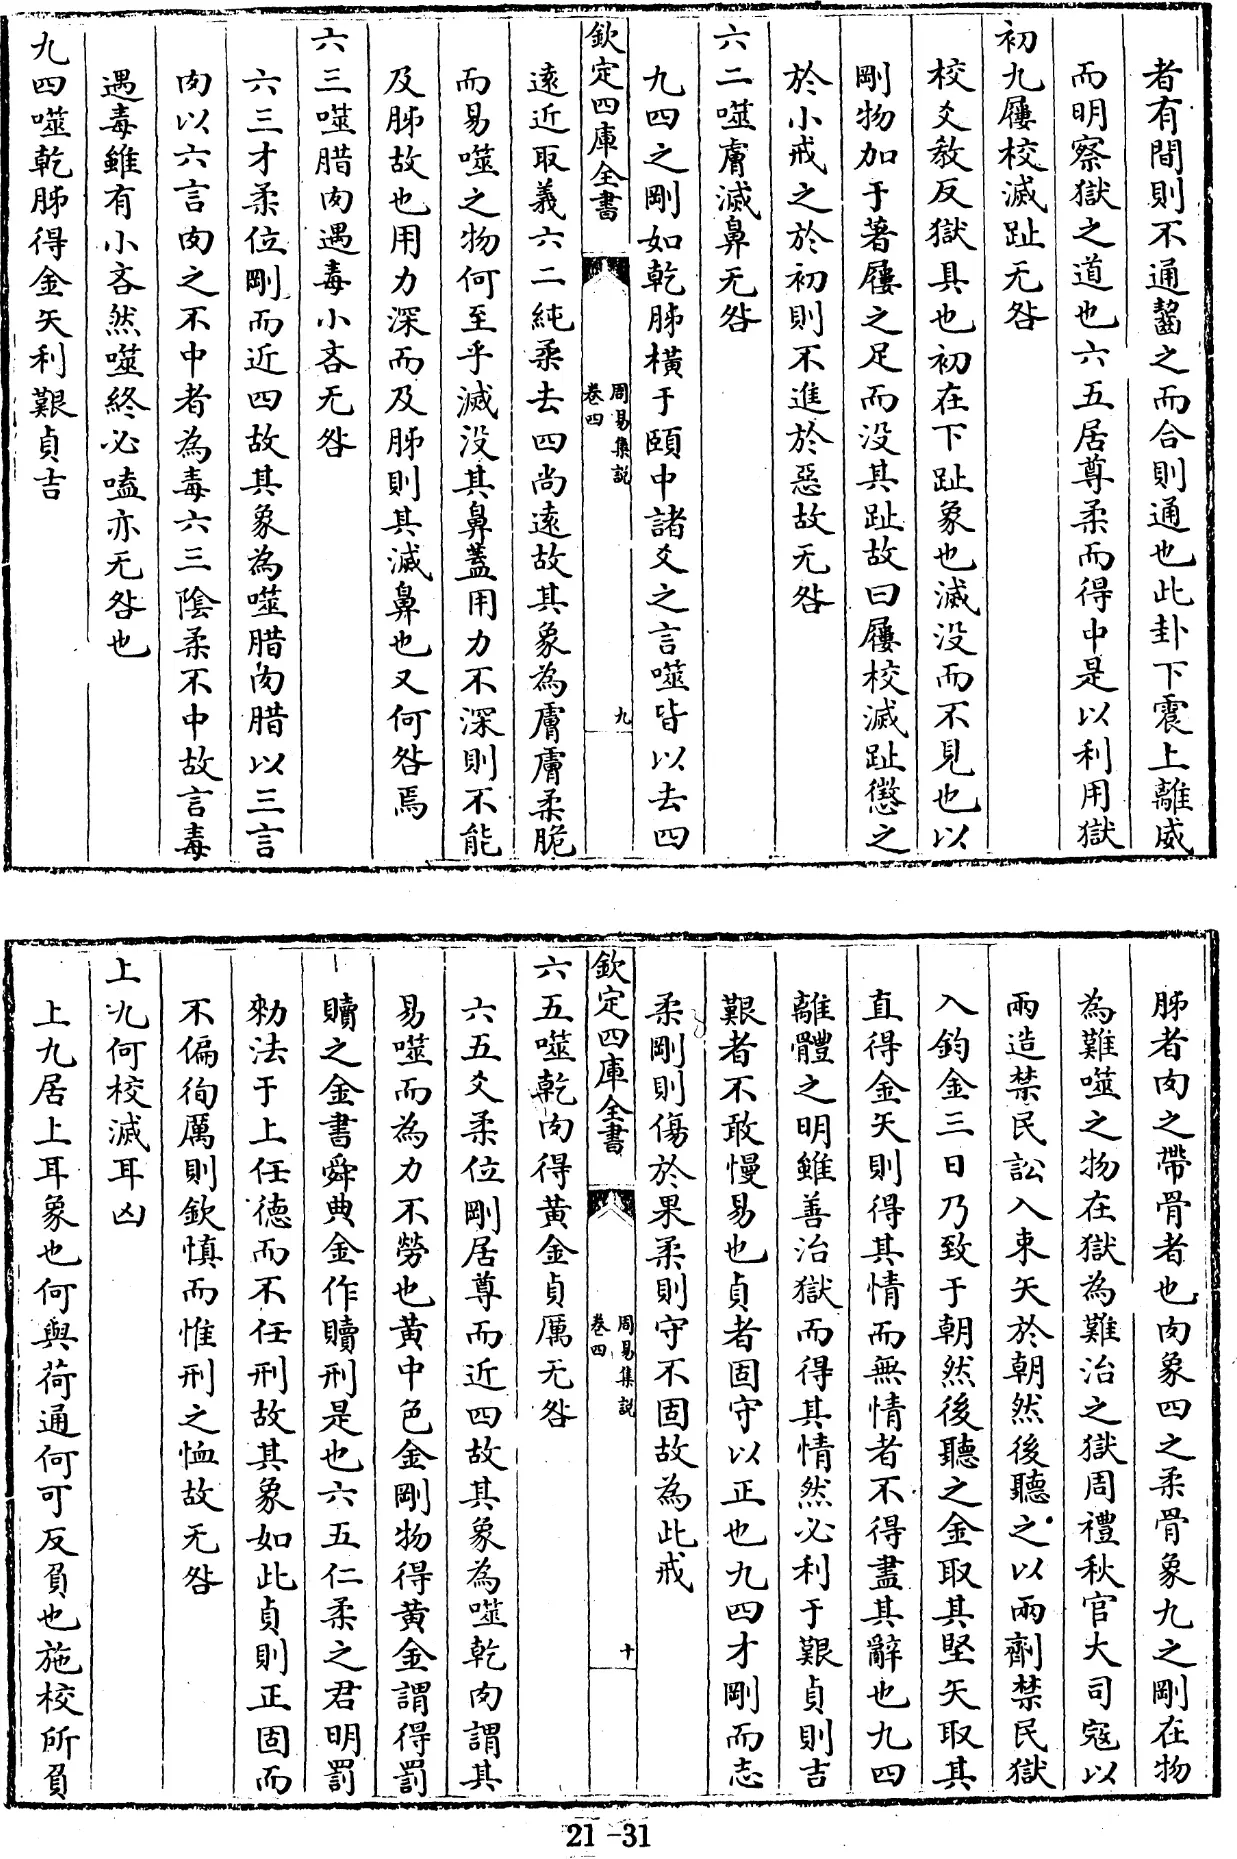 者有間則不通齧之而合則通也此卦下震上離威
而明察獄之道也六五居尊柔而得中是以利用獄
初九屨校滅趾无咎
校爻教反獄具也初在下趾象也滅没而不見也以
剛物加于著屨之足而没其趾故曰屨校滅趾懲之
於小戒之於初則不進於惡故无咎
六二噬膚滅鼻无咎
九四之剛如乾胏橫于頤中諸爻之言噬皆以去四
欽定四庫全書
周易集説
卷四
九
遠近取義六二純柔去四尚遠故其象為膚膚柔脆
而易噬之物何至乎滅没其鼻蓋用力不深則不能
及胏故也用力深而及胏則其滅鼻也又何咎焉
六三噬腊肉遇毒小吝无咎
六三才柔位剛而近四故其象為噬腊肉腊以三言
肉以六言肉之不中者為毒六三陰柔不中故言毒
遇毒雖有小吝然噬終必嗑亦无咎也
九四噬乾胏得金矢利艱貞吉
胏者肉之帶骨者也肉象四之柔骨象九之剛在物
為難噬之物在獄為難治之獄周禮秋官大司寇以
兩造禁民訟入束矢於朝然後聽之以兩劑禁民獄
入鈞金三日乃致于朝然後聽之金取其堅矢取其
直得金矢則得其情而無情者不得盡其辭也九四
離體之明雖善治獄而得其情然必利于艱貞則吉
艱者不敢慢易也貞者固守以正也九四才剛而志
柔剛則傷於果柔則守不固故為此戒
欽定四庫全書
周易集説
卷四
十
六五噬乾肉得黃金貞厲无咎
六五爻柔位剛居尊而近四故其象為噬乾肉謂其
易噬而為力不勞也黃中色金剛物得黃金謂得罰
贖之金書舜典金作贖刑是也六五仁柔之君明罰
勑法于上任德而不任刑故其象如此貞則正固而
不偏徇厲則欽慎而惟刑之恤故无咎
上九何校滅耳凶
上九居上耳象也何與荷通何可反負也施校所負
21-31